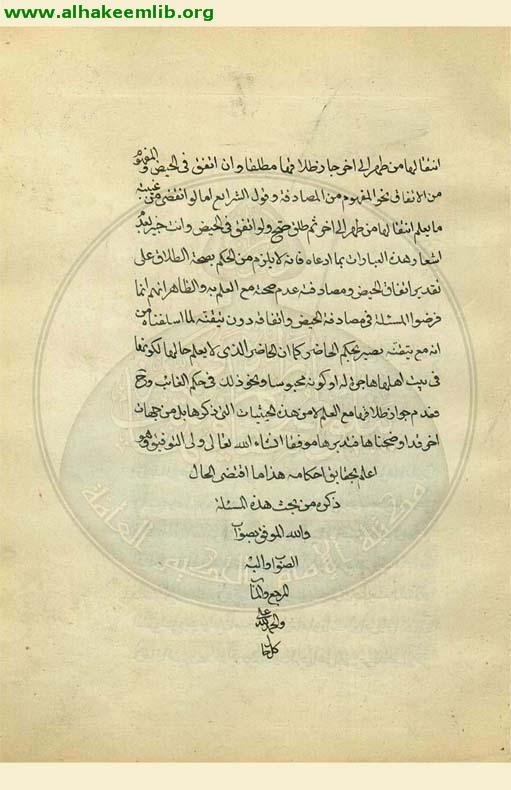 www.alhakeemlib.org
انتقالها من طهر الى اخر جاز طلاقها مطلقا وان اتفق فى الحيض والمفهوم
من الاتفاق نحو المفهوم من المصادفة وقول الشرايع اما لو انقضى من غيبته
ما يعلم انتقالها من طهر الى اخر ثم طلق صح ولو اتفق فى الحيض وانت خبير بعدم
اشعار هذه العبارات بما ادعاه فانه لا يلزم من الحكم بصحة الطلاق على
تقدير اتفاق الحيض ومصادفته عدم صحته مع العلم به والظاهر انهم انما
فرضوا المسئلة فى مصادفة الحيض واتفاقه دون تيقنه لما اسلفناه من
انه مع تيقنه يصير بحكم الحاضر كما ان الحاضر الذى لا يعلم حالها لكونها
فى بيت اهلها هاجرة له او كونه محبوسا ونحو ذلك فى حكم الغائب وح
فعدم جواز طلاقها مع العلم لا من هذه الحيثيات التى ذكرها بل من جهات
اخر قد اوضحناها فتدبرها موفقا انشاء الله تعالى ولى التوفيق وهو
اعلم بحقايق احكامه هذا ما اقتضى الحال
ذكره من بحث هذه المسئلة
والله الموفق بصواب
الصواب واليه
المرجع والمآب
والحمد لله على
كل حال